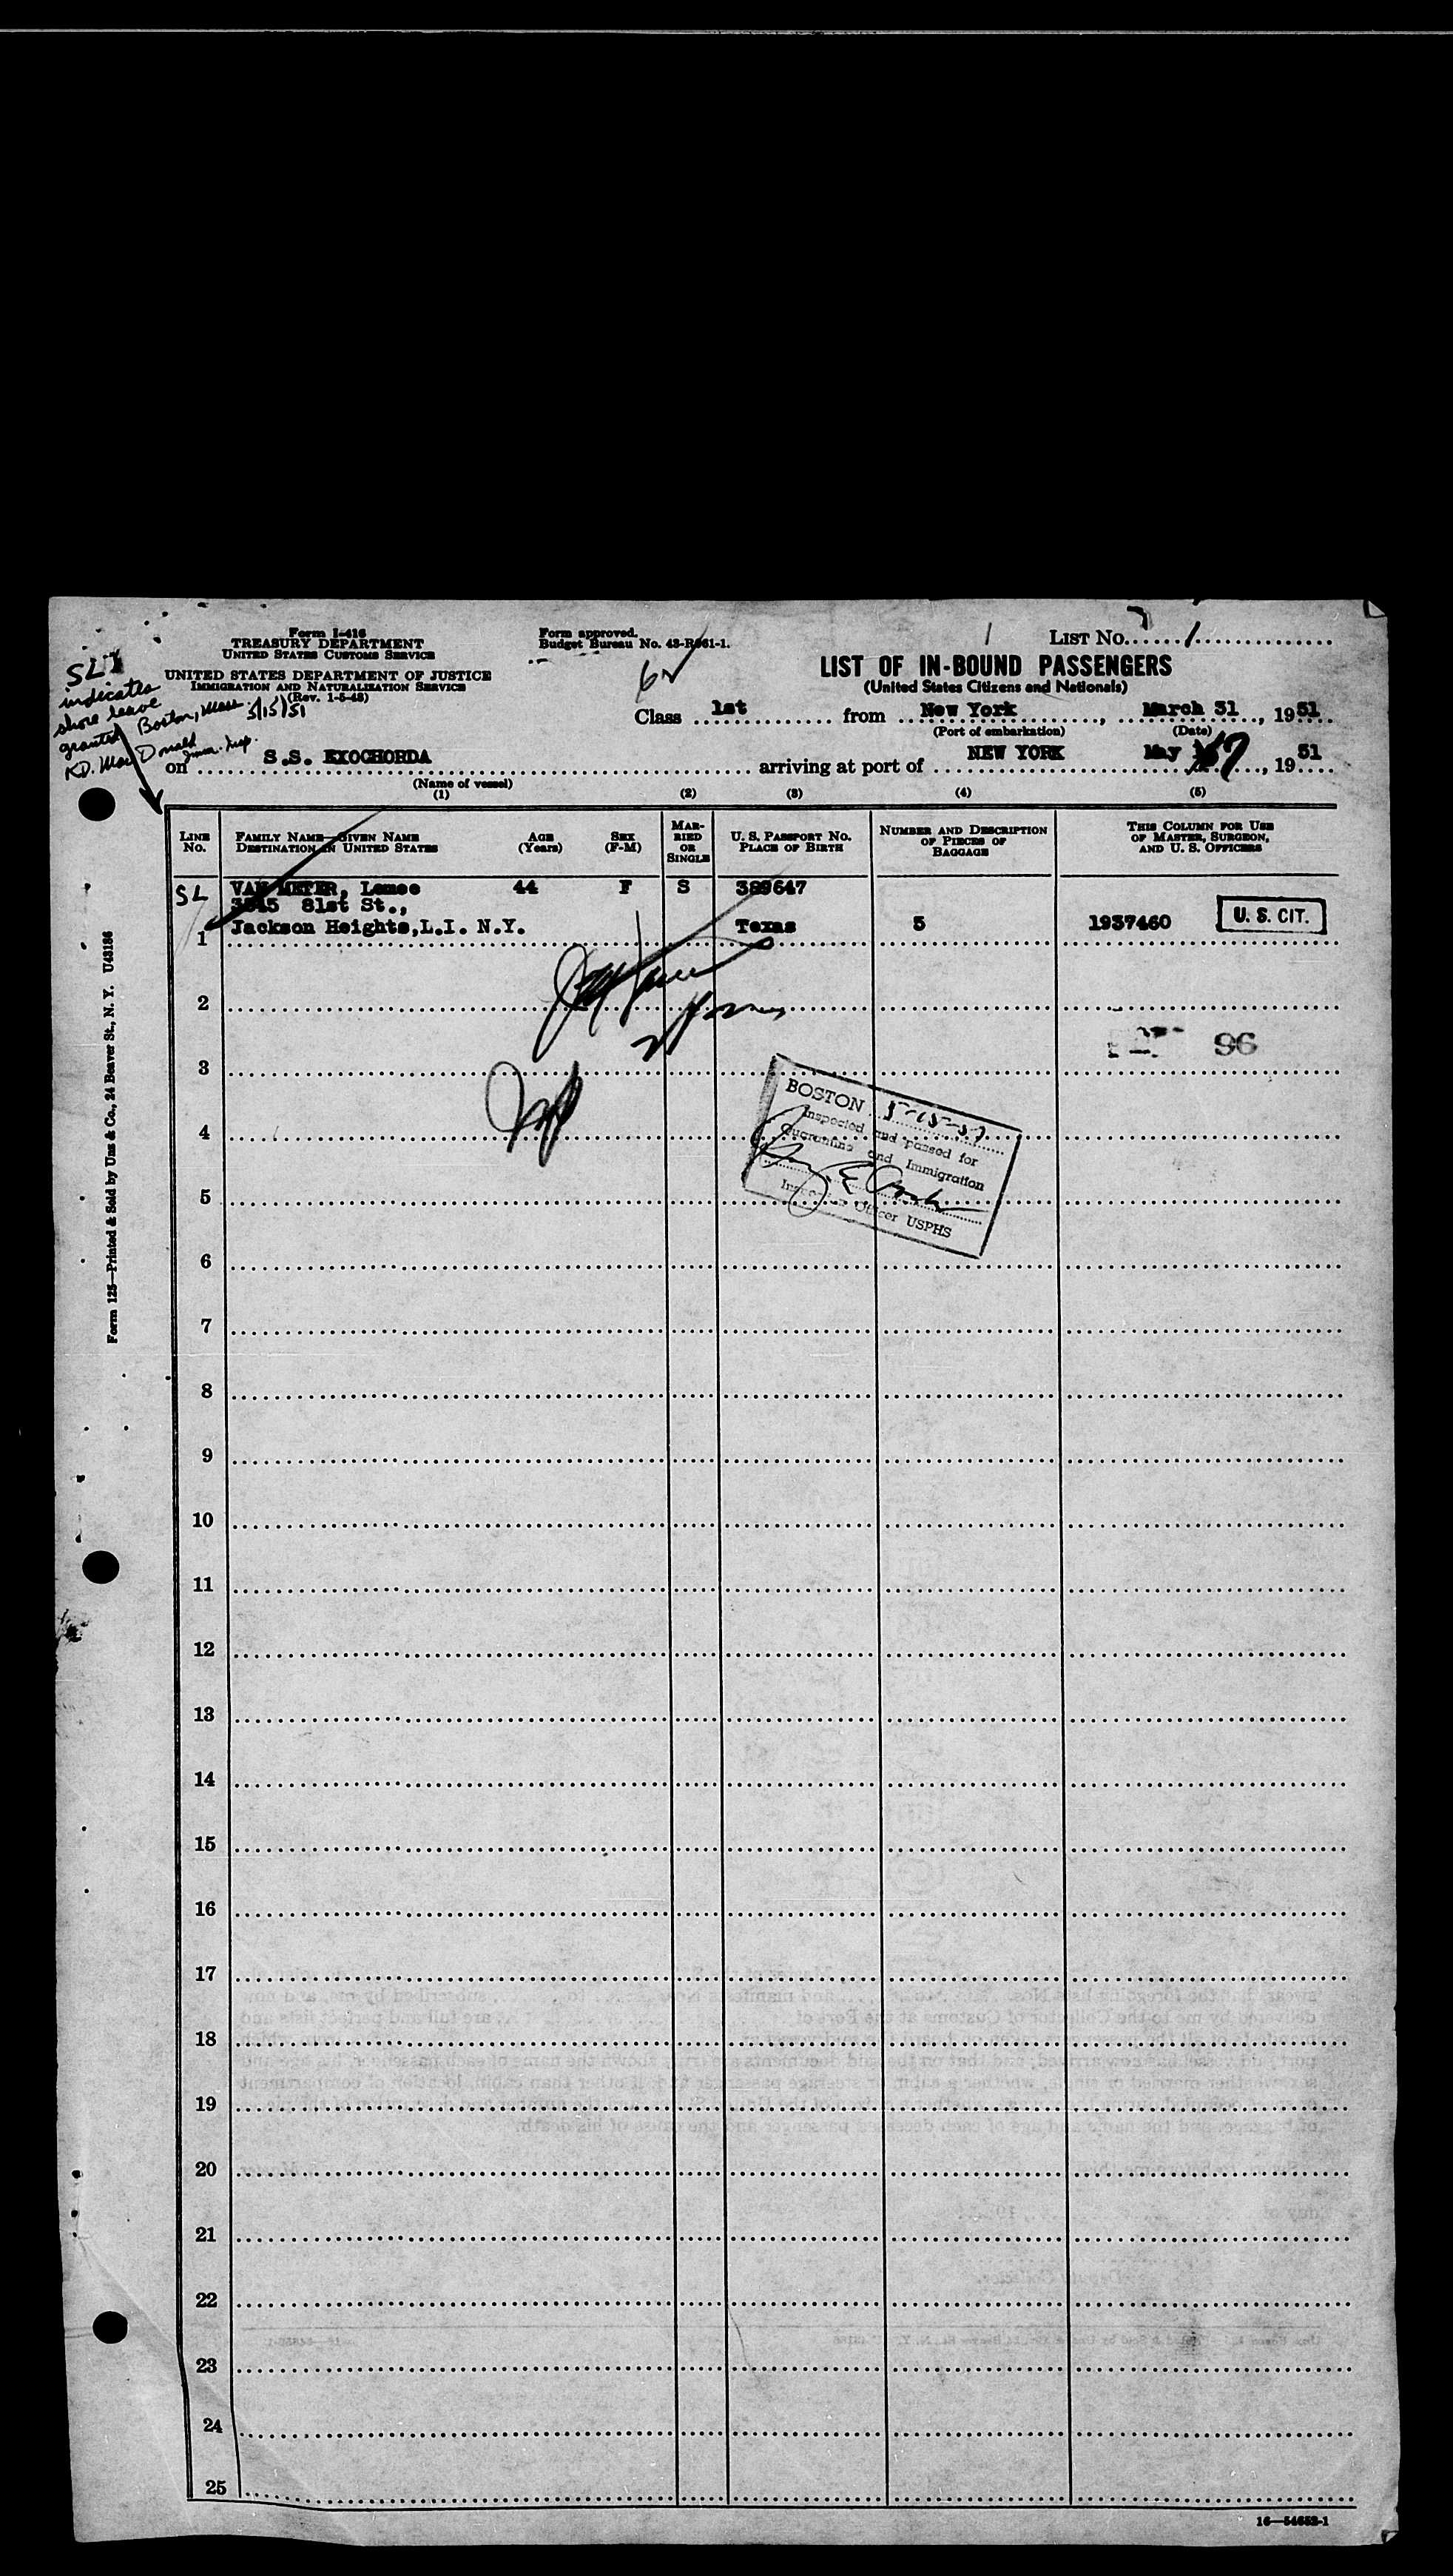 Form I-416
TREASURY DEPARTMENT
UNITED STATES CUSTOMS SERVICE
UNITED STATES DEPARTMENT OF JUSTICE
IMMIGRATION AND NATURALIZATION SERVICE
(Rev. 1-5-48)
Form approved.
Budget Bureau No. 43-R061-1.
1 LIST No. 1
LIST OF IN-BOUND PASSENGERS
(United States Citizens and Nationals)
SL
indicates
shore leave
granted Boston, Mass. 5/15/51
KD. MacDonald
Imm. Insp.
Class 1st from New York, March 31, 1951
(Port of embarkation) (Date)
on S.S. EXOCHORDA arriving at port of NEW YORK May 17, 1951
(Name of vessel)
(1) (2) (3) (4) (5)
LINE No.
FAMILY NAME—GIVEN NAME
DESTINATION IN UNITED STATES
AGE (Years)
SEX (F-M)
MARRIED OR SINGLE
U. S. PASSPORT No.
PLACE OF BIRTH
NUMBER AND DESCRIPTION OF PIECES OF BAGGAGE
THIS COLUMN FOR USE OF MASTER, SURGEON, AND U. S. OFFICERS
SL VAN METER, 44 F S 389647
81st St.,
1 Jackson Heights, L.I. N.Y. Texas 5 1937460 U. S. CIT.
2
3 96
BOSTON 5-15-51
Inspected and passed for
Quarantine and Immigration
Officer USPHS
4
5
6
7
8
9
10
11
12
13
14
15
16
17
18
19
20
21
22
23
24
25
Form 125—Printed & Sold by Unz & Co., 24 Beaver St., N. Y. U43186
16—54652-1